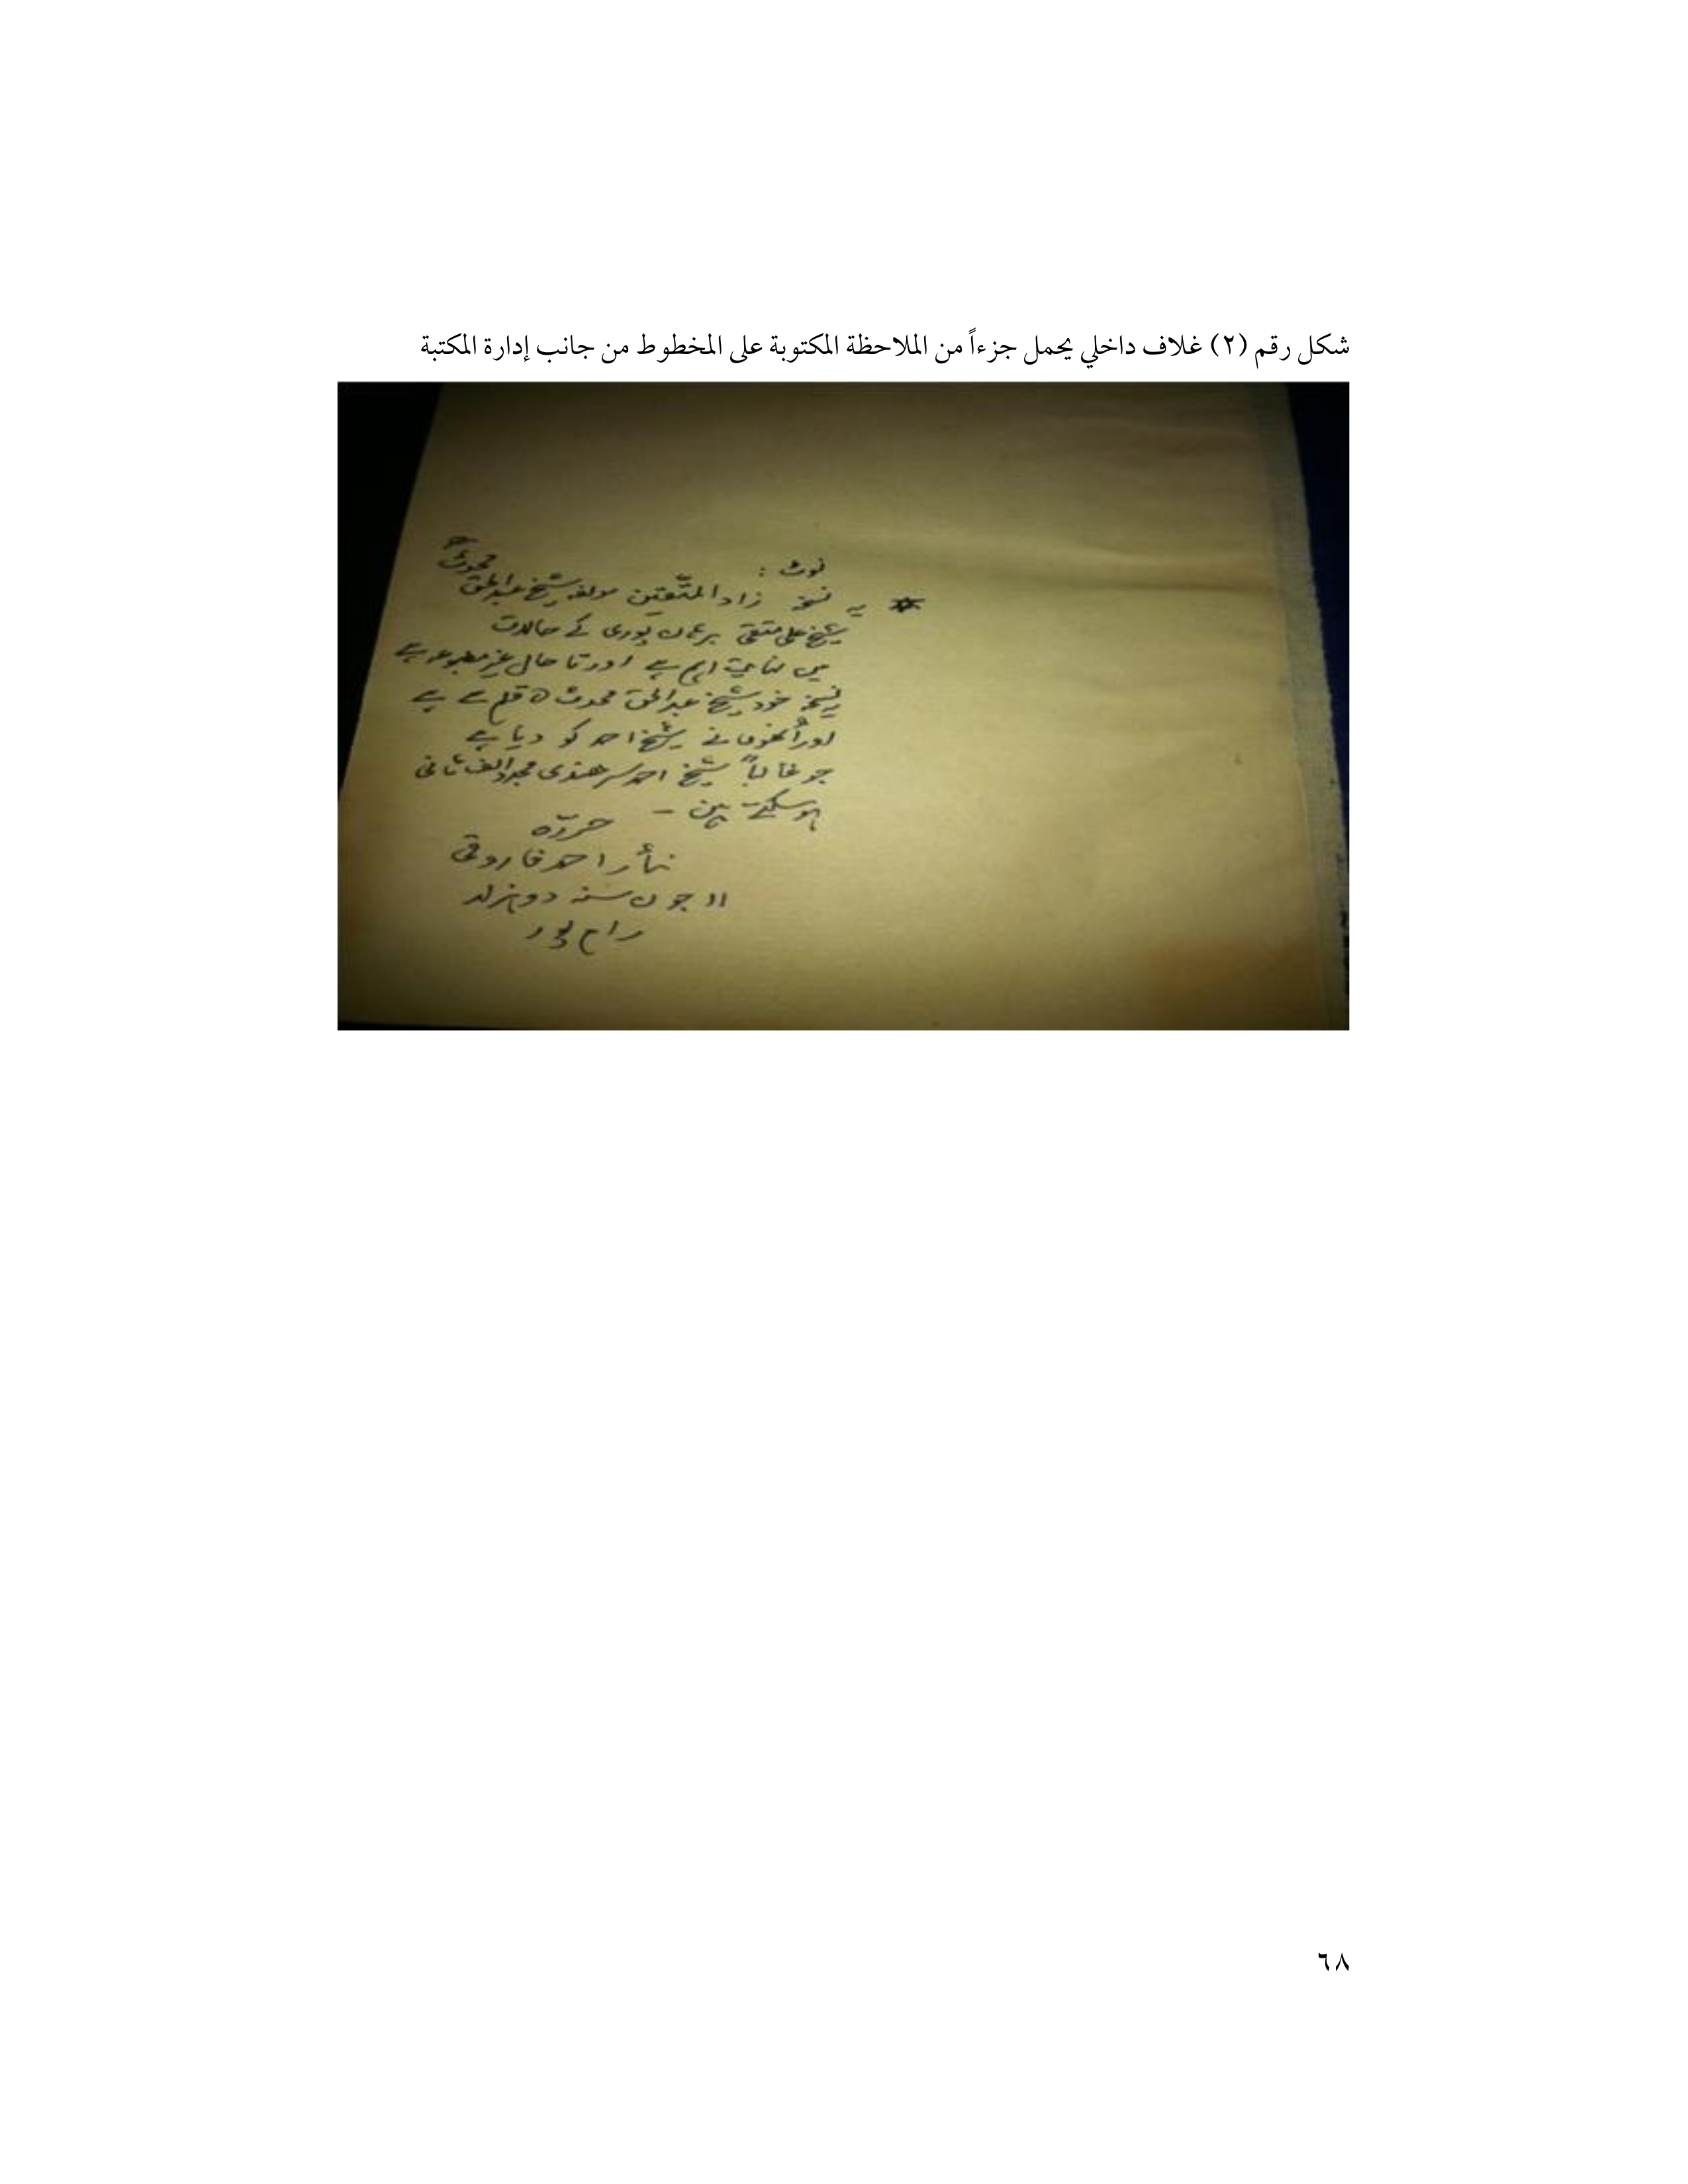 شكل رقم (٢) غلاف داخلي يحمل جزءاً من الملاحظة المكتوبة على المخطوط من جانب إدارة المكتبة
نوٹ :
یہ نسخہ زاد المتّقین مولفہ شیخ عبدالحق محدثؒ
شیخ علی متقی برہان پوری کے حالات
میں نہایت اہم ہے اور تا حال غیر مطبوعہ ہے
یہ نسخہ خود شیخ عبدالحق محدث قلم سے ہے
اور اُنھوں نے شیخ احمد کو دیا ہے
جو غالباً شیخ احمد سرھندی مجدد الف ثانی
ہوسکتے ہیں ۔
حررّہ
نثار احمد فاروقی
۱۱ جون سنہ دو ہزار
رام پور
٦٨